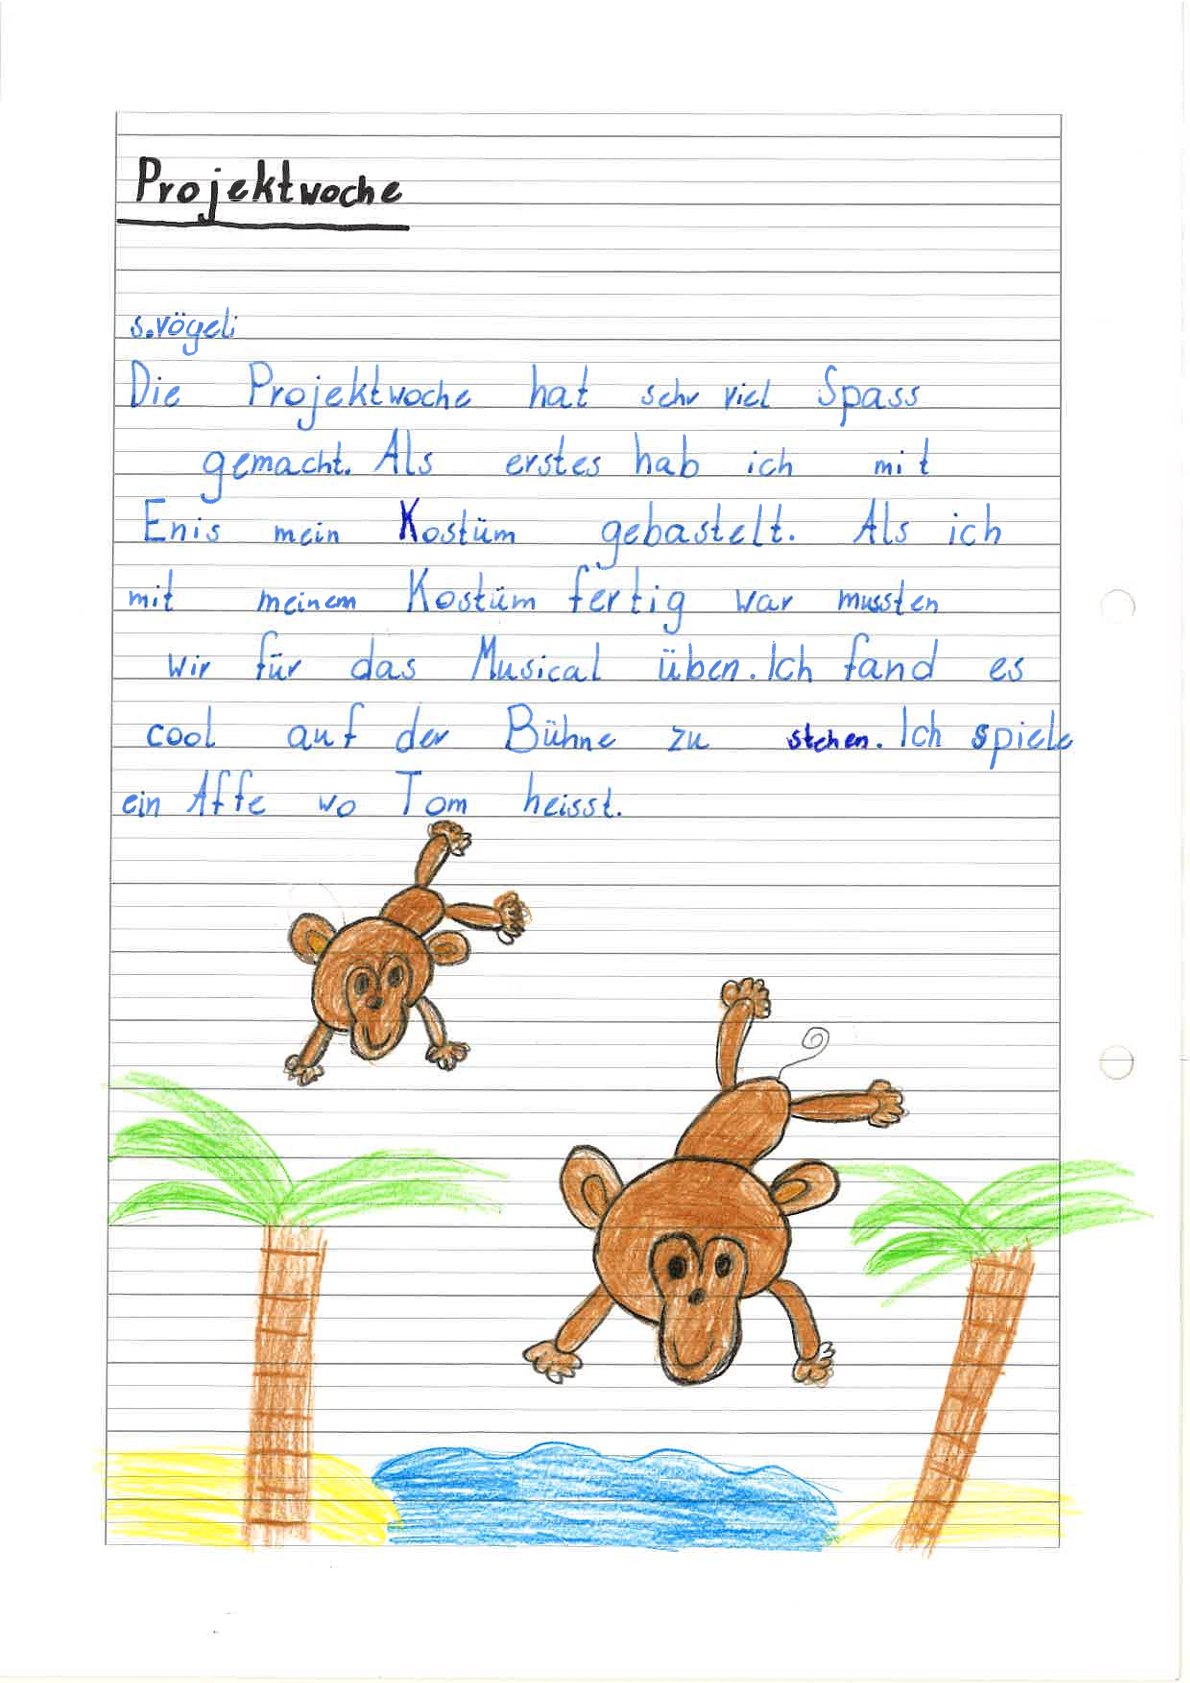 Projektwoche
S. Vögeli
Die Projektwoche hat sehr viel Spass
gemacht. Als erstes hab ich mit
Enis mein Kostüm gebastelt. Als ich
mit meinem Kostüm fertig war mussten
wir für das Musical üben. Ich fand es
cool auf der Bühne zu stehen. Ich spiele
ein Affe wo Tom heisst.